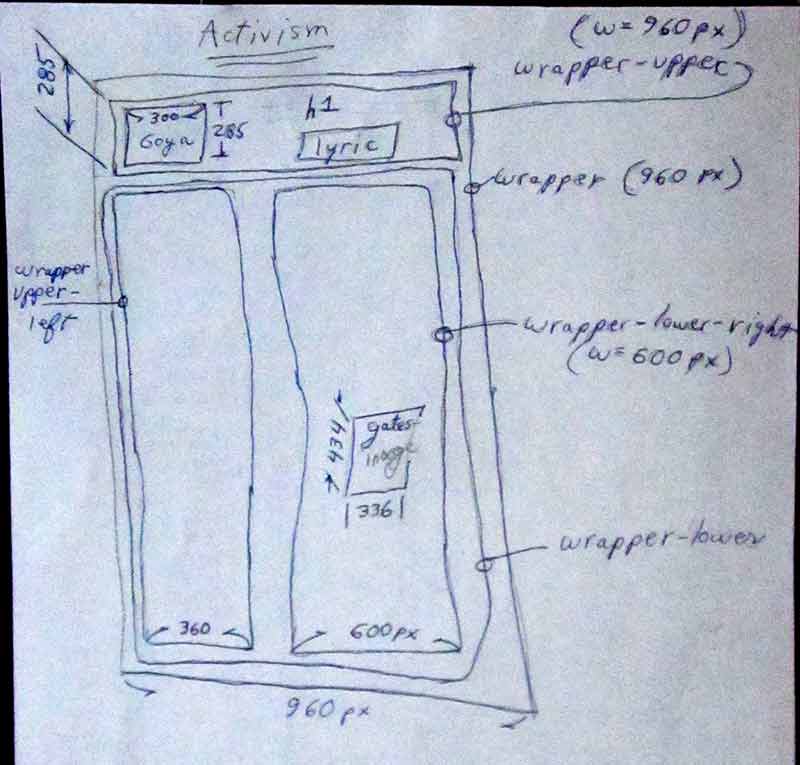 Activism
(w = 960 px)
wrapper-upper
285
300
Goya
285
h1
lyric
wrapper (960 px)
wrapper
upper-
left
wrapper-lower-right
(w = 600 px)
434
gates-
image
336
wrapper-lower
360
600px
960 px